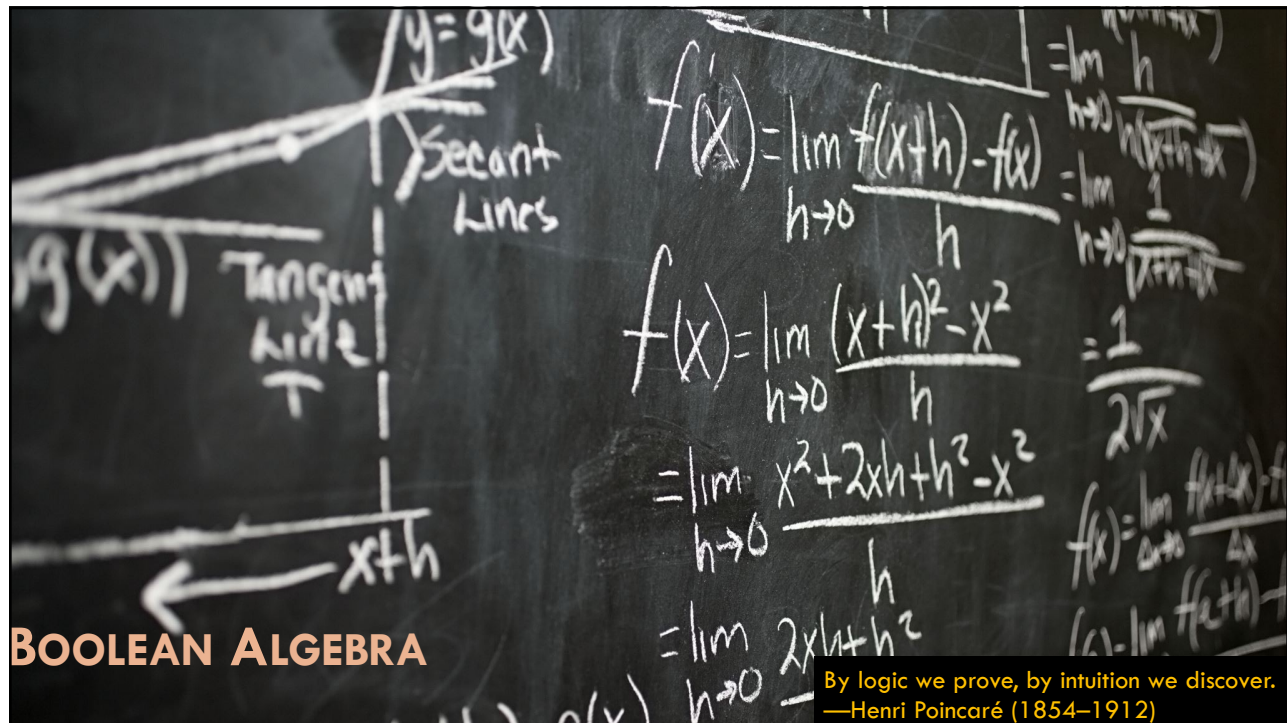 y=g(x)
Secant
Lines
g(x))
Tangent
Line
T
x+h
f'(x)=lim f(x+h)-f(x)
h→0 h
f(x)=lim (x+h)²-x²
h→0 h
=lim x²+2xh+h²-x²
h→0 h
=lim 2xh+h²
h→0
=lim h
h→0 h(√x+h+√x)
=lim 1
h→0 √x+h+√x
=1
2√x
f(x)=lim f(x+Δx)-f
Δx→0 Δx
BOOLEAN ALGEBRA
By logic we prove, by intuition we discover.
—Henri Poincaré (1854–1912)